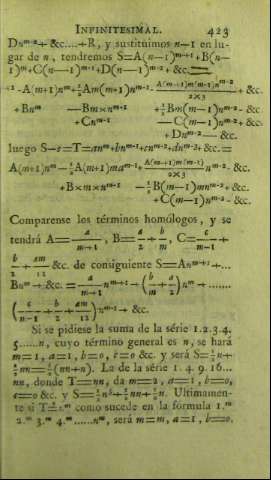 INFINITESIMAL. 423
Dn^{m-2}+ &c....+R, y sustituimos n−1 en lu-
gar de n, tendremos S=A(n−1)^{m+1}+B(n−
1)^m+C(n−1)^{m-1}+D(n−1)^{m-2}+ &c.
-A(m+1)n^m+\frac{1}{2}Am(m+1)n^{m-1}-\frac{A(m+1)m(m-1)n^{m-2}}{2×3}+ &c.
+Bn^m −Bm×n^{m-1} − &c.
+Cn^{m-1} −C(m−1)n^{m-2}+ &c.
+Dn^{m-2}— &c.
luego S−s=T=an^m+bn^{m-1}+cn^{m-2}+dn^{m-3}+ &c.=
Comparense los términos homólogos, y se
tendrá A=\frac{a}{m+1}, B=\frac{a}{2}+\frac{b}{m}, C=\frac{c}{m-1}+
\frac{b}{2}+\frac{am}{12} &c. de consiguiente S=An^{m+1}+...
Bn^m+ &c.=\frac{a}{m+1}n^{m+1}+(\frac{b}{m}+\frac{a}{2})n^m+.......
+ \frac{b}{2}+\frac{am}{12})n^{m-1}+ &c.
Si se pidiese la suma de la série 1.2.3.4.
5......n, cuyo término general es n, se hará
m=1, a=1, b=0, c=0 &c. y será S=\frac{1}{2}n+
\frac{1}{2}nn=\frac{1}{2}(nn+n). La de la série 1. 4. 9. 16...
nn, donde T=nn, da m=2, a=1, b=0,
c=0 &c. y S=\frac{1}{3}n^3+\frac{1}{2}nn+\frac{1}{6}n. Ultimamen-
te si como sucede en la fórmula 1.^m
2.^m 3.^m 4.^m......n^m, será m=m, a=1, b=0,